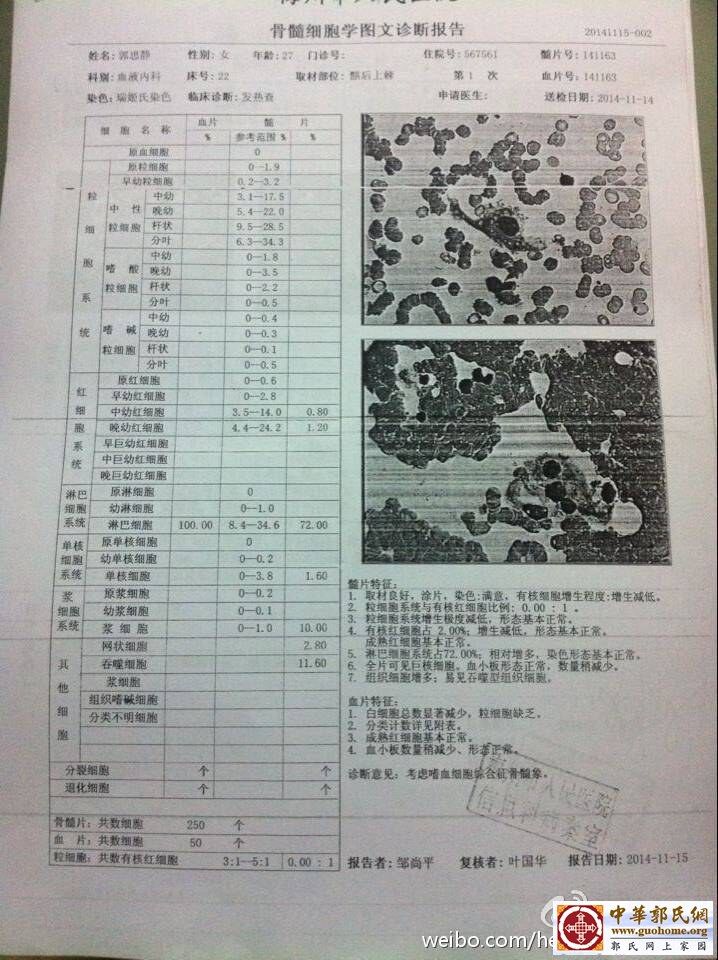 骨髓细胞学图文诊断报告
20141115-002
姓名: 郭思静 性别: 女 年龄: 27 门诊号: 住院号: 567561 髓片号: 141163
科别: 血液内科 床号: 22 取材部位: 髂后上棘 第 1 次 血片号: 141163
染色: 瑞姬氏染色 临床诊断: 发热查 申请医生: 送检日期: 2014-11-14
细胞名称 血片 髓片
% 参考范围 % %
原血细胞 0
一
粒细胞系统
原粒细胞 0-1.9
早幼粒细胞 0.2-3.2
中性粒细胞
中幼 3.1-17.5
晚幼 5.4-22.0
杆状 9.5-28.5
分叶 6.3-34.3
嗜酸粒细胞
中幼 0-1.8
晚幼 0-3.5
杆状 0-2.2
分叶 0-0.5
嗜碱粒细胞
中幼 0-0.4
晚幼 0-0.3
杆状 0-0.1
分叶 0-0.5
红细胞系统
原红细胞 0-0.6
早幼红细胞 0-2.8
中幼红细胞 3.5-14.0 0.80
晚幼红细胞 4.4-24.2 1.20
早巨幼红细胞
中巨幼红细胞
晚巨幼红细胞
淋巴细胞系统
原淋细胞 0
幼淋细胞 0-1.0
淋巴细胞 100.00 8.4-34.6 72.00
单核细胞系统
原单核细胞 0
幼单核细胞 0-0.2
单核细胞 0-3.8 1.60
浆细胞系统
原浆细胞 0-0.2
幼浆细胞 0-0.1
浆细胞 0-1.0 10.00
其他细胞
网状细胞 2.80
吞噬细胞 11.60
浆细胞
组织嗜碱细胞
分类不明细胞
分裂细胞 个 个
退化细胞 个 个
骨髓片: 共数细胞 250 个
血 片: 共数细胞 50 个
粒细胞: 共数有核红细胞 3:1-5:1 0.00 : 1
髓片特征:
1. 取材良好, 涂片, 染色: 满意, 有核细胞增生程度: 增生减低。
2. 粒细胞系统与有核红细胞比例: 0.00 : 1 。
3. 粒细胞系统增生极度减低, 形态基本正常。
4. 有核红细胞占 2.00%; 增生减低, 形态基本正常。
成熟红细胞基本正常。
5. 淋巴细胞系统占72.00%; 相对增多, 染色形态基本正常。
6. 全片可见巨核细胞。血小板形态正常, 数量稍减少。
7. 组织细胞增多; 易见吞噬型组织细胞。
血片特征:
1. 白细胞总数显著减少, 粒细胞缺乏。
2. 分类计数详见附表。
3. 成熟红细胞基本正常。
4. 血小板数量稍减少、形态正常。
诊断意见: 考虑嗜血细胞综合征骨髓象。
人民医院
报告者: 邹尚平 复核者: 叶国华 报告日期: 2014-11-15
weibo.com/he
中華郭氏網
www.guohome.org
郭氏网上家园